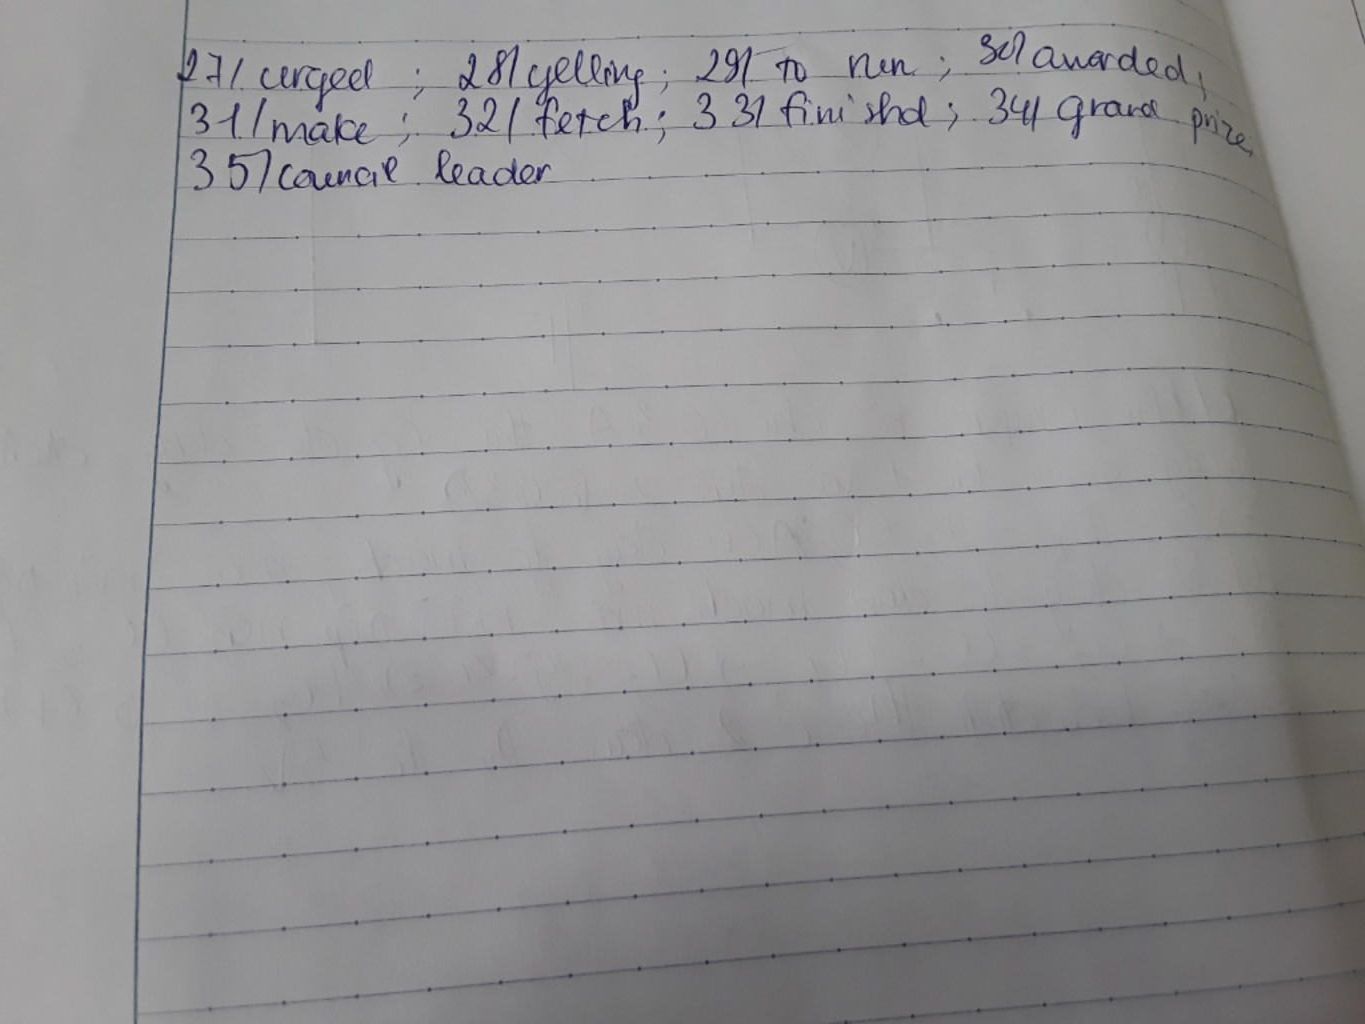 27/ urged ; 28/ yelling ; 29/ to run ; 30/ awarded ;
31/ make ; 32/ fetch ; 33/ finishd ; 34/ grand prize,
35/ council leader